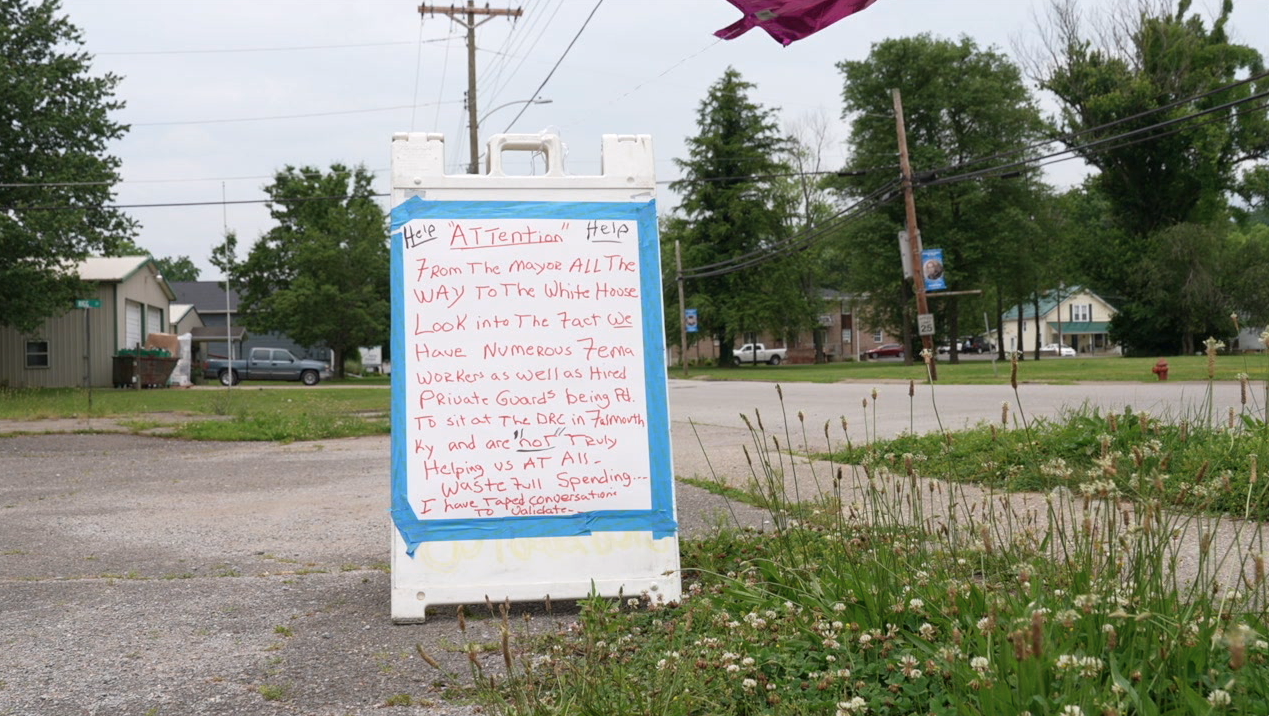 Help "ATTention" Help
From The Mayor ALL The
WAY To The White House
Look into The Fact We
Have Numerous Fema
workers as well as Hired
Private Guards being Pd.
To sit at The DRC in Falmouth
Ky and are "not" Truly
Helping us AT All-
Waste Full Spending...
I have Taped conversations
To Validate--
25